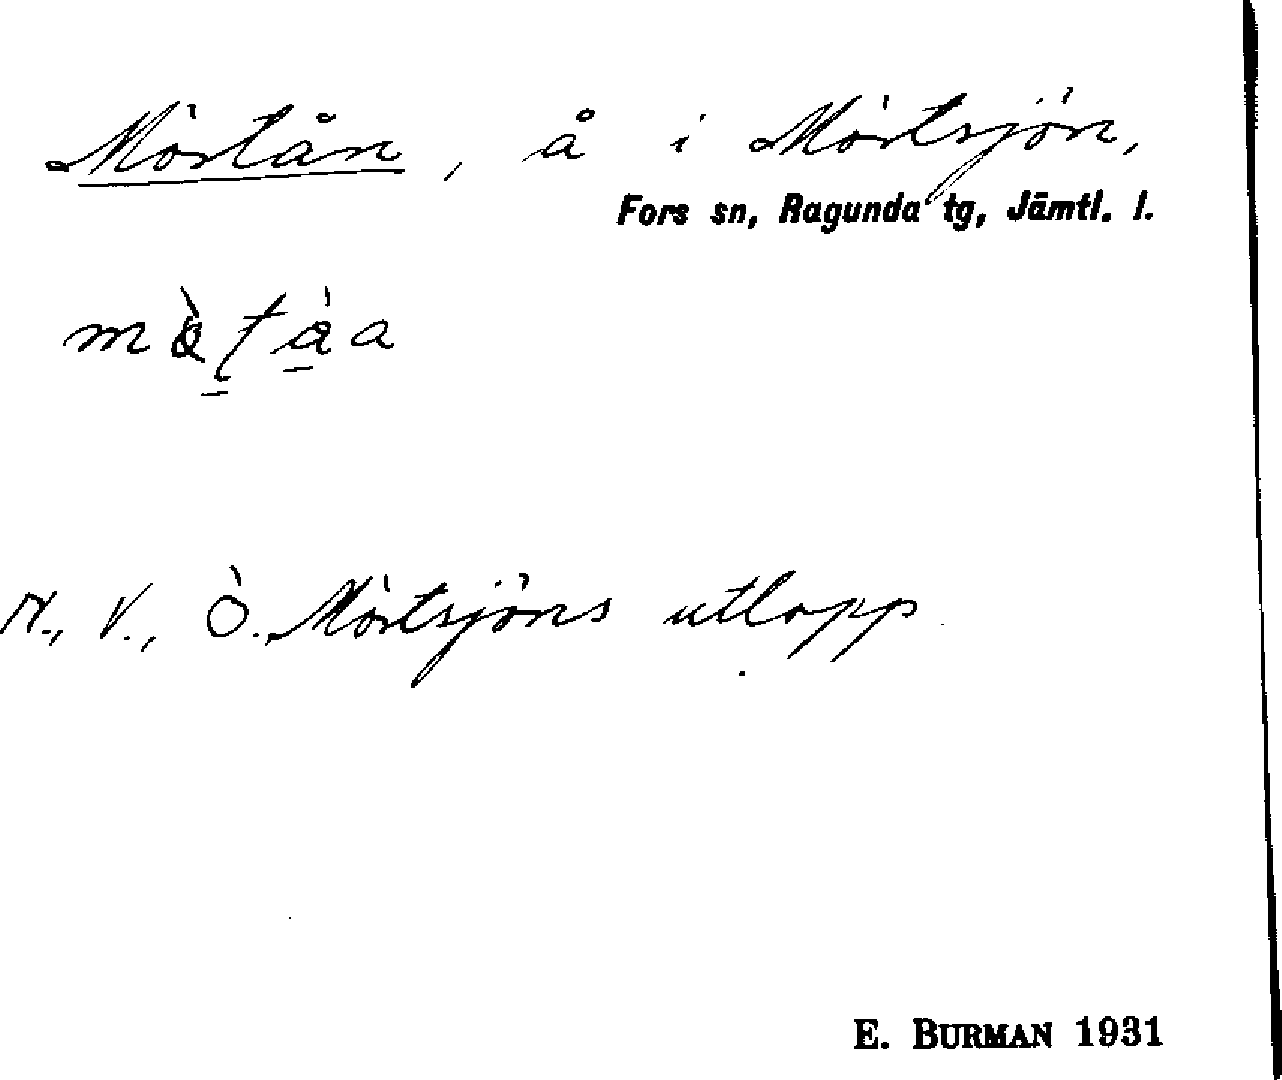 Mörtån, å i Mörtsjön,
Fors sn, Ragunda tg, Jämtl. l.
N., V., Ö. Mörtsjöns utlopp
E. BURMAN 1931